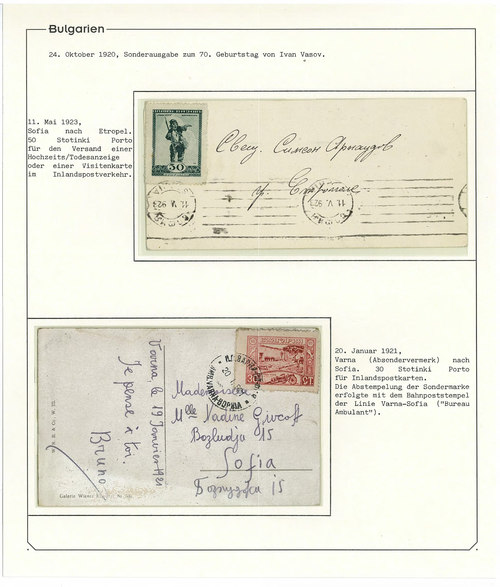 Bulgarien
24. Oktober 1920, Sonderausgabe zum 70. Geburtstag von Ivan Vasov.
11. Mai 1923,
Sofia nach Etropel.
50 Stotinki Porto
für den Versand einer
Hochzeits/Todesanzeige
oder einer Visitenkarte
im Inlandspostverkehr.
50
Свещ. Симеон Арнаудов
гр.
11. V. 923
11. V. 923
20. Januar 1921,
Varna (Absendervermerk) nach
Sofia. 30 Stotinki Porto
für Inlandspostkarten.
Die Abstempelung der Sondermarke
erfolgte mit dem Bahnpoststempel
der Linie Varna-Sofia ("Bureau
Ambulant").
30
Varna, le 19 Janvier 1921
Je pense à toi.
Bruno
Mademoiselle
Mlle Nadine
Bozludja 15
Sofia
15
Galerie Wiener